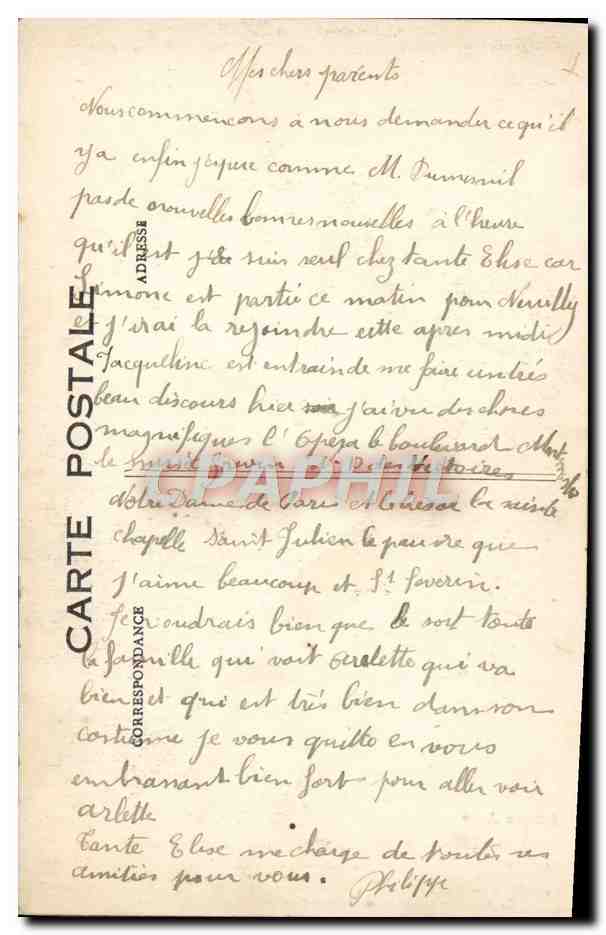 Mes chers parents
Nous commencons à nous demander ce qu'il
y a enfin j'espere comme M. Dumesnil
pas de nouvelles bonnes nouvelles à l'heure
qu'il est je suis seul chez tante Elise car
Simone est partie ce matin pour Neuilly
et j'irai la rejoindre cette apres midi
Jacqueline est entrain de me faire un très
beau discours hier j'ai vu des choses
magnifiques l'Opéra le boulevard
le musé Grevin des Victoires
Notre Dame de Paris et la sainte
chapelle Saint Julien le pauvre que
j'aime beaucoup et St Severin.
Je voudrais bien que soit toute
la famille qui voit Arlette qui va
bien et qui est très bien dans son
costume je vous quitte en vous
embrassant bien fort pour aller voir
arlette
Tante Elise me charge de toutes ses
amitiés pour vous. Philippe
CARTE POSTALE
ADRESSE
CORRESPONDANCE
CPAPHIL